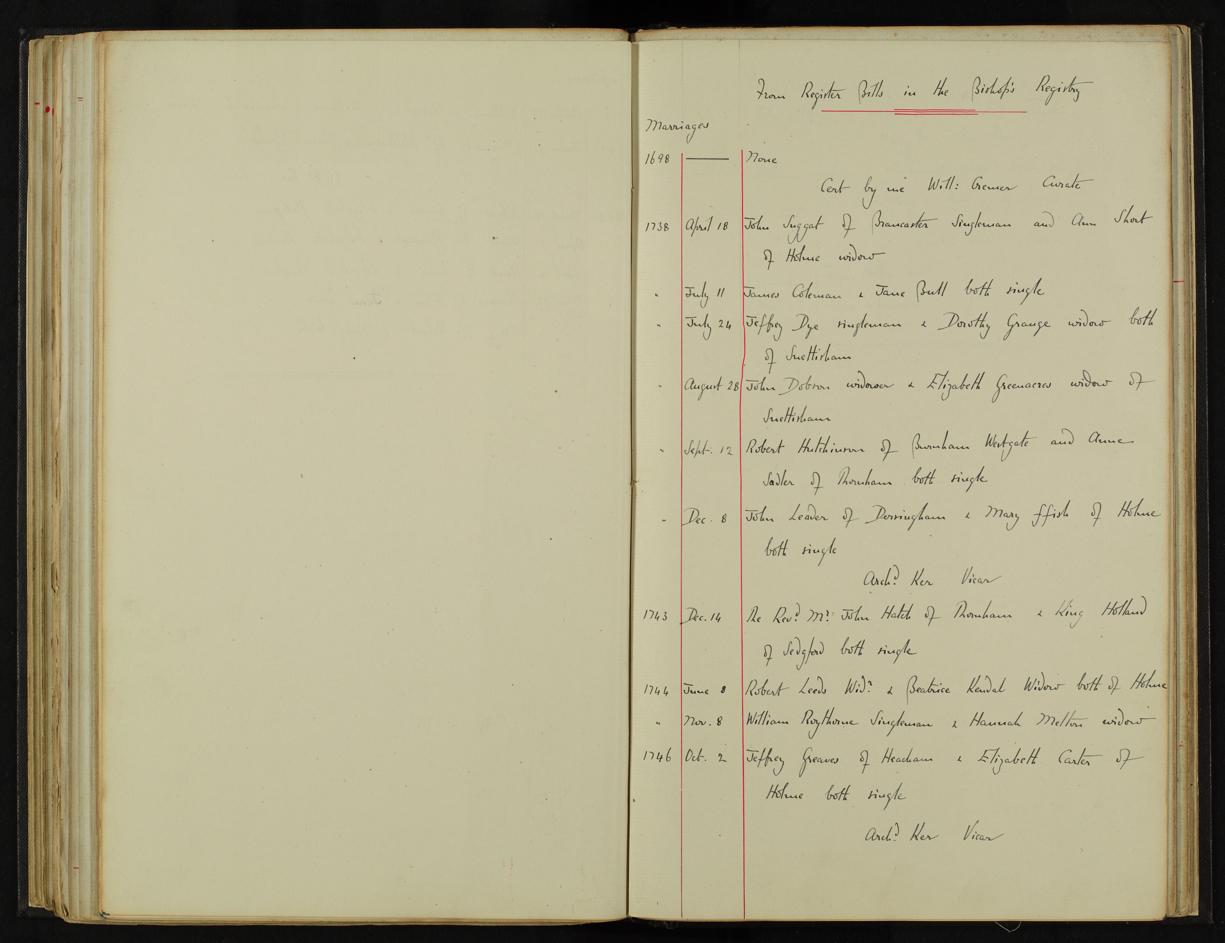 From Register Bills in the Bishop's Registry
Marriages
1698 —— None
Cert by me Will: Cremer Curate
1738 April 18 John Suggat of Brancaster Singleman and Ann Short
of Holme widow
" July 11 James Coleman & Jane Bull both single
" July 24 Jeffrey Dye singleman & Dorothy Grange widow both
of Snettisham
" August 28 John Dobson widower & Elizabeth Greenacres widow of
Snettisham
" Sept. 12 Robert Hutchinson of Burnham Westgate and Anne
Sadler of Thornham both single
" Dec. 8 John Leader of Dersingham & Mary ffish of Holme
both single
Archd Ker Vicar
1743 Dec. 14 The Revd Mr John Hatch of Thornham & King Holland
of Sedgford both single
1744 June 8 Robert Leeds Widr & Beatrice Kendal Widow both of Holme
" Nov. 8 William Roythorne Singleman & Hannah Melton widow
1746 Oct. 2 Jeffrey Greaves of Heacham & Elizabeth Carter of
Holme both single
Archd Ker Vicar